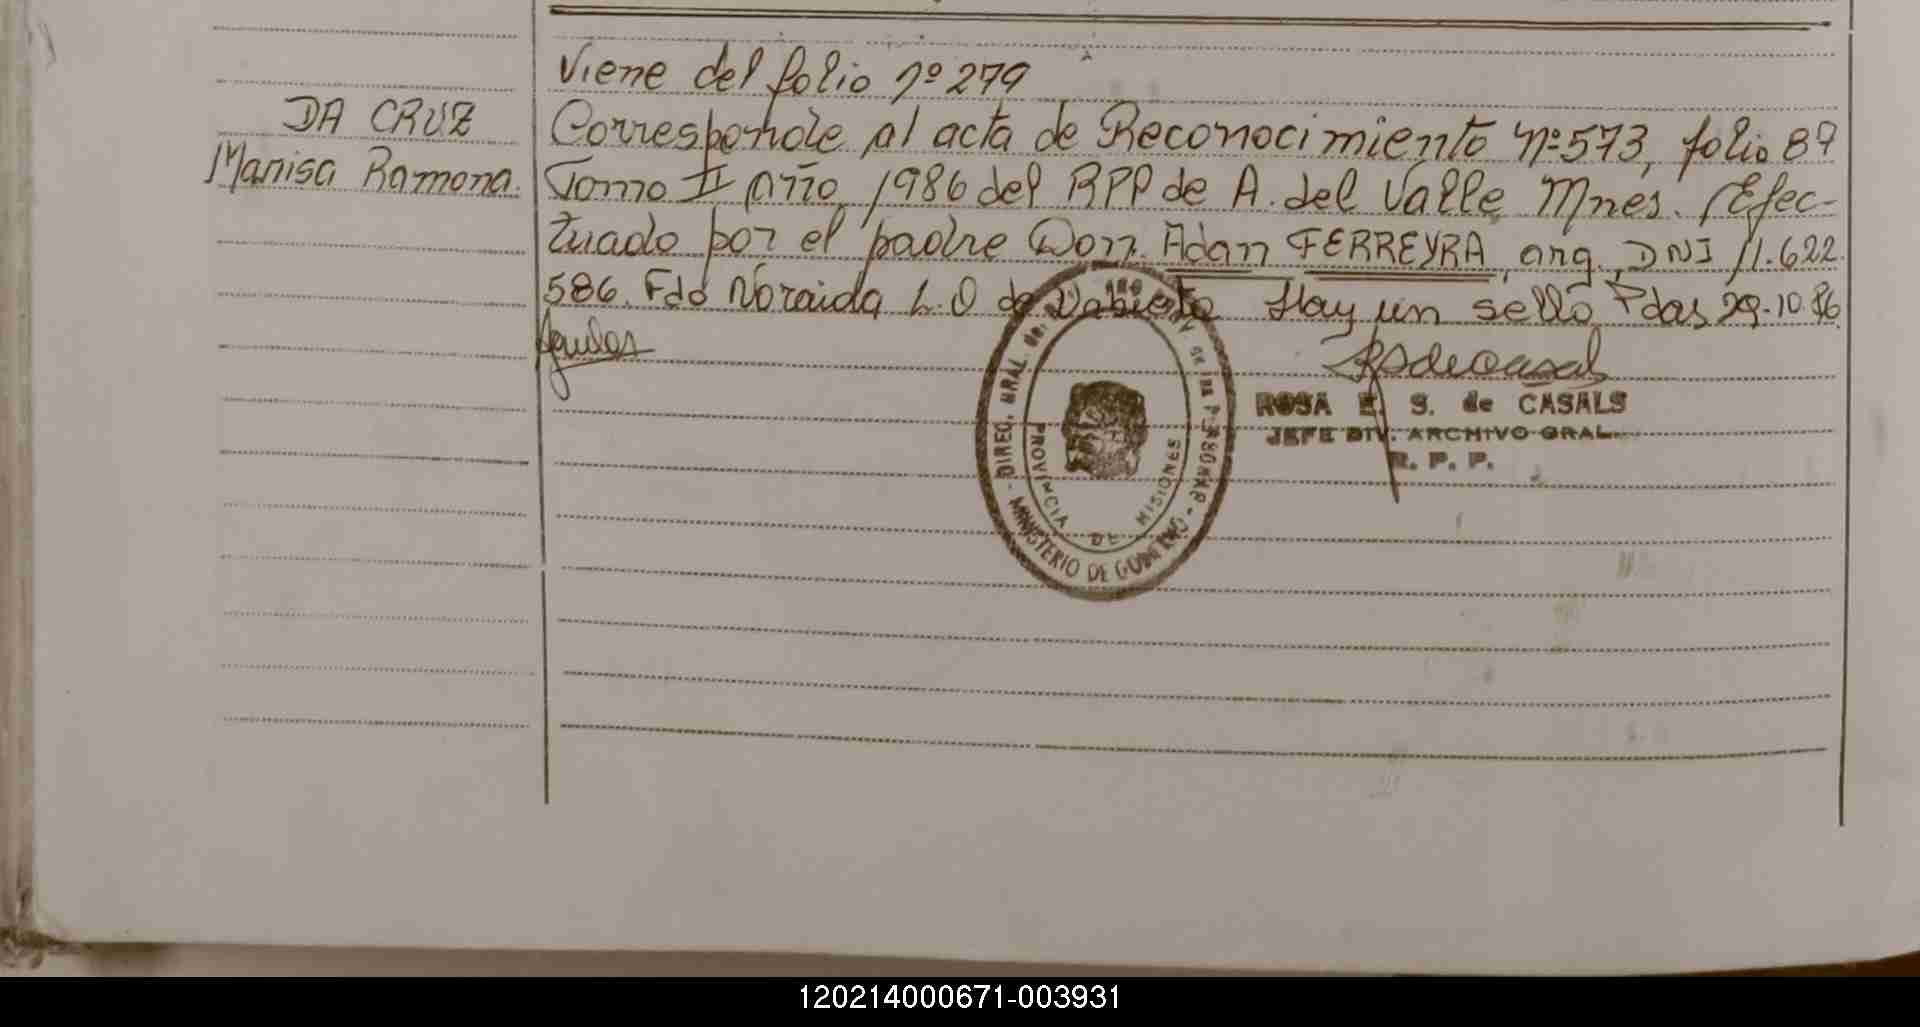 Viene del folio nº 279
DA CRUZ
Marisa Ramona.
Corresponde al acta de Reconocimiento Nº 573, folio 87
Tomo II año 1986 del RPP de A. del Valle, Mnes. Efec-
tuado por el padre Don. Adan FERREYRA, arg., DNI 11.622.
586. Fdo Noraida L. O de Hay un sello Pdas 29-10-86
ROSA E. S. de CASALS
JEFE DIV. ARCHIVO GRAL.
R. P. P.
DIREC. GRAL. de las
MINISTERIO DE GOBIERNO
PROVINCIA DE MISIONES
120214000671-003931